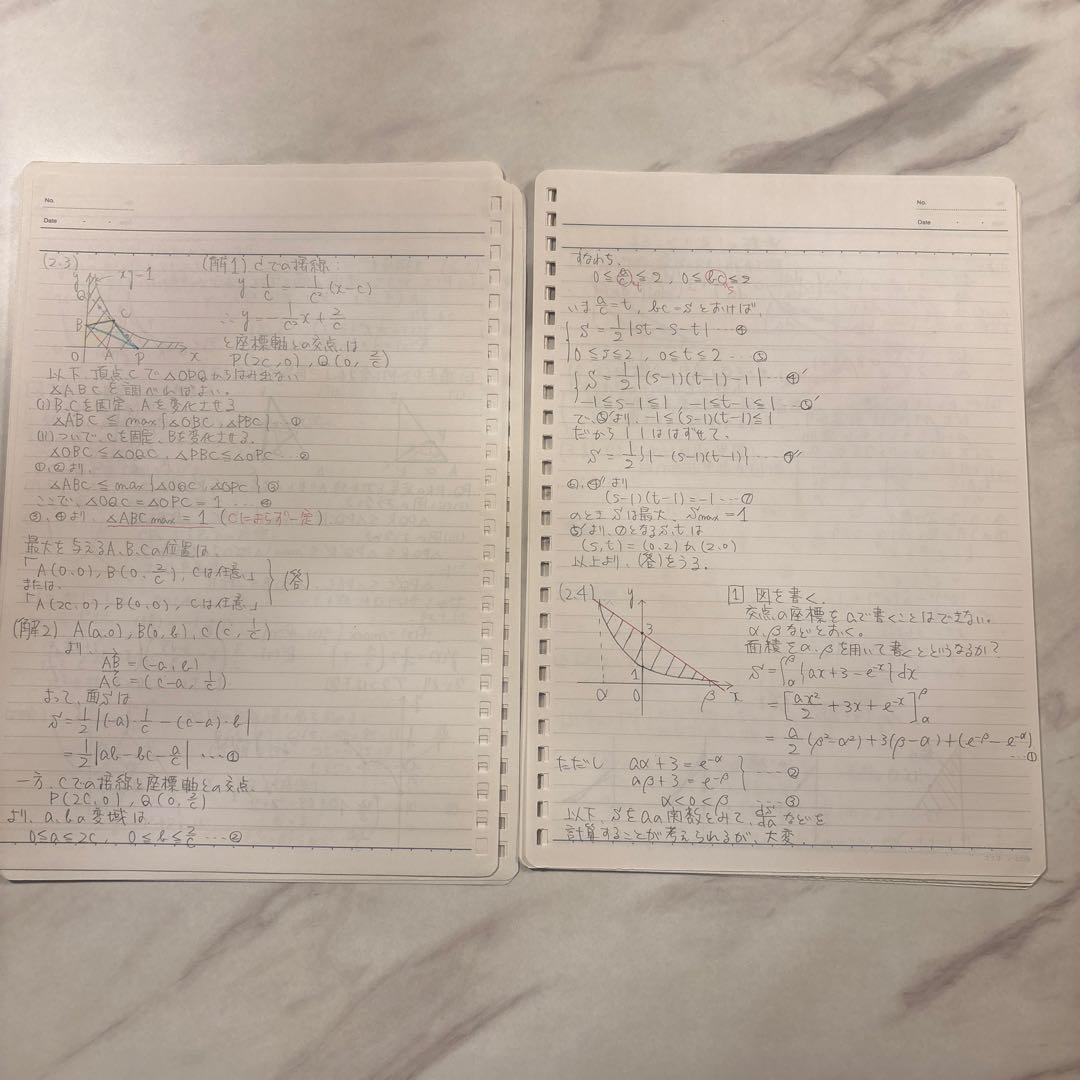 No.
Date
(2.3)
xy=1
y
Q
B
C
O
A
P
x
(解1) Cでの接線:
y-1/c=-1/c²(x-c)
∴ y=-1/c²x+2/c
と座標軸との交点は
P(2c,0), Q(0, 2/c)
以下、頂点Cで△OPQからはみ出ない
△ABCを調べればよい。
(i) B.Cを固定、Aを変化させる
△ABC≦max{△OBC, △PBC}…①
(ii) ついで、Cを固定、Bを変化させる.
△OBC≦△OQC, △PBC≦△OPC…②
①,②より、
△ABC≦max{△OQC, △OPC}③
ここで、△OQC=△OPC=1…④
③,④より、△ABCmax=1 (Cによらず一定)
最大を与えるA、B、Cの位置は、
「A(0,0), B(0, 2/c), Cは任意」
または、
「A(2c,0), B(0,0), Cは任意」
(答)
(解2) A(a,0), B(0,b), C(c, 1/c)
より、
AB=(-a,b)
AC=(c-a, 1/c)
よって、面Sは
S=1/2|(-a)・1/c-(c-a)・b|
=1/2|ab-bc-a/c|…①
一方、Cでの接線と座標軸との交点、
P(2c,0), Q(0, 2/c)
より、a,bの変域は、
0≦a≦2c, 0≦b≦2/c…②
No.
Date
すなわち、
0≦a/c≦2, 0≦bc≦2
t
s
いま a/c=t, bc=sとおけば、
S=1/2|st-s-t|…④
0≦s≦2, 0≦t≦2…⑤
S=1/2|(s-1)(t-1)-1|…④′
-1≦s-1≦1, -1≦t-1≦1…⑤′
で、⑤′より、-1≦(s-1)(t-1)≦1
だから | | ははずせて、
S=1/2{1-(s-1)(t-1)}…④″
⑥,④″より
(s-1)(t-1)=-1…⑦
のときSは最大、Smax=1
⑤′より、⑦となるs,tは
(s,t)=(0,2)か(2,0)
以上より、(答)をうる.
(2.4)
y
3
1
α
0
β
x
1 図を書く.
交点の座標をaで書くことはできない。
α,βなどとおく。
面積をα,βを用いて書くとどうなるか?
S=∫αβ{ax+3-e-x}dx
=[ax²/2+3x+e-x]αβ
=a/2(β²-α²)+3(β-α)+(e-β-e-α)
…①
ただし aα+3=e-α
aβ+3=e-β
…②
α<0<β …③
以下、Sをaの関数とみて、dS/daなどを
計算することが考えられるが、大変.